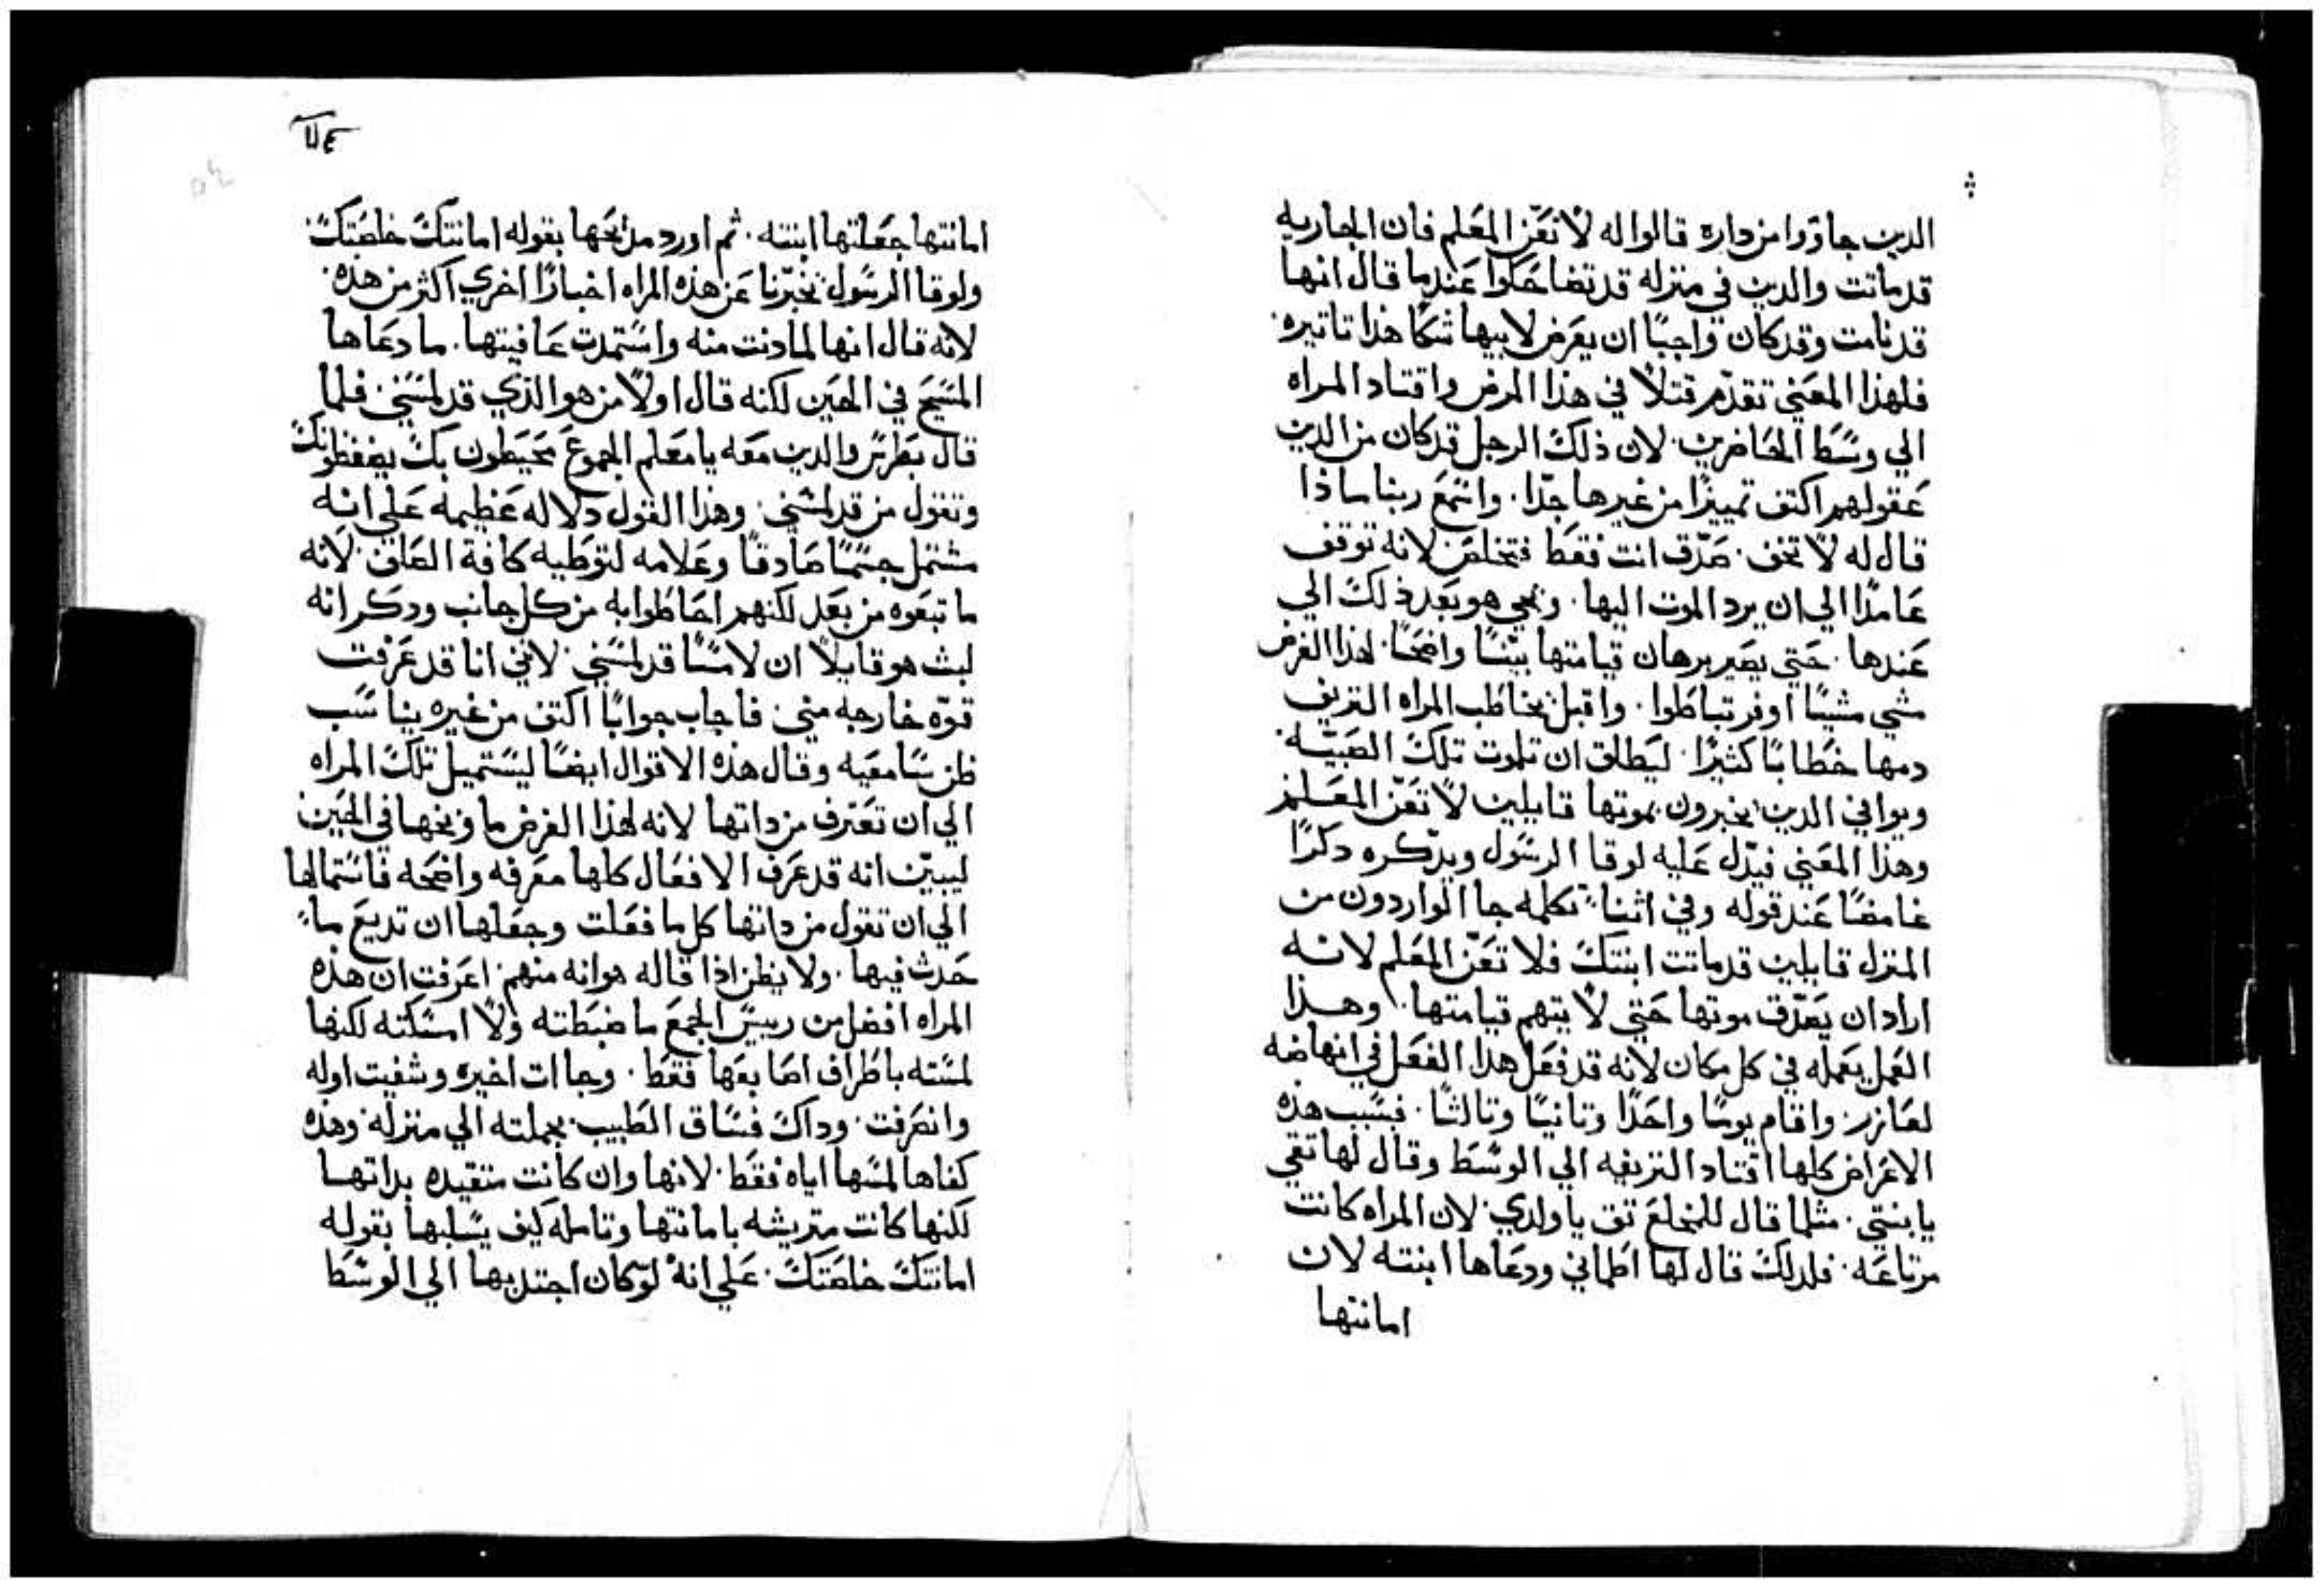 الدين جاووا من داره قالوا له لا تعنّ المعلم فان الجاريه
قد ماتت والدين في منزله قد تضاحكوا عندما قال انها
قد نامت وقد كان واجبًا ان يعرض لابيها شكا هذا تاتيره
فلهذا المعني تقدّم قتلًا في هذا المرض واقتاد المراه
الي وسط الحاضرين لان ذلك الرجل قد كان من الدين
عقولهم اكتف تمييزًا من غيرها جدّا. واسمع ربنا ماذا
قال له لا تخف. صدّق انت فقط فتخلص لانه توقف
عامدًا الي ان يرد الموت اليها. ونحي هو بعد ذلك الي
عندها. حتي يصير برهان قيامتها بينًا واضحًا. لهذا الغرض
مشي مشيًا اوفر تباطوا. واقبل يخاطب المراه النزيف
دمها خطابًا كثيرًا. ليطلق ان تموت تلك الصبيّه.
ويوافي الدين يخبرون بموتها قايلين لا تعنّ المعلم
وهذا المعني فيدل عليه لوقا الرسول ويدّكره دكرًا
غامضًا عند قوله وفي اثنا تكلمه جا الواردون من
المنزل قايلين قد ماتت ابنتك فلا تعنّ المعلم لانه
اراد ان يصدّق موتها حتي لا يتهم قيامتها. وهذا
العمل يعمله في كل مكان لانه قد فعل هدا الفعل في انهاضه
لعازر. واقام يومًا واحدًا وتانيًا وتالثًا. فبسبب هذه
الاغراض كلها اقتاد النزيفه الي الوسط وقال لها تقي
يا بنتي. مثلما قال للمخلع تق يا ولدي. لان المراه كانت
مرتاعه. فلدلك قال لها اطماني ودعاها ابنته لان
امانتها
٧٤
امانتها جعلتها ابنته. ثم اورد مدايحها بقوله امانتك خلصتك.
ولوقا الرسول يخبّرنا عن هذه المراه اخبارًا اخري اكثر من هذه.
لانه قال انها لما دنت منه واستمدت عافيتها. ما دعاها
المسيح في الحين لكنه قال اولًا من هو الذي قد لمسني. فلما
قال بطرس والدين معه يا معلم الجموع محيطون بك يضغطونك
وتقول من قد لمسني. وهذا القول دلاله عظيمه علي انه
مشتمل جسمًا صادقًا وعلامه لتوطيه كافة الصلف. لانه
ما تبعوه من بعد لكنهم احاطوا به من كل جانب ودكر انه
لبث هو قايلًا ان لامسًا قد لمسني لانني انا قد عرفت
قوّه خارجه مني. فاجاب جوابًا اكتف من غيره يناسب
ظن سامعيه وقال هذه الاقوال ايضًا ليستميل تلك المراه
الي ان تعترف من داتها لانه لهذا الغرض ما وبخها في الحين
ليبيّن انه قد عرف الافعال كلها معرفه واضحه فاستمالها
الي ان تقول من داتها كل ما فعلت وجعلها ان تديع ما
حدث فيها. ولا يظن اذا قاله هو انه منهم. اعرفت ان هذه
المراه افضل من رييس الجمع ما ضبطته ولا امسكته لكنها
لمسته باطراف اصابعها فقط. وجاات اخيره وشفيت اوله
وانصرفت. وداك فساق الطبيب بجملته الي منزله. وهذه
كفاها لمسها اياه فقط. لانها وان كانت متقيده بداتها
لكنها كانت متريشه بامانتها وتامله كيف يسلبها بقوله
امانتك خلصتك. علي انه لو كان اجتدبها الي الوسط